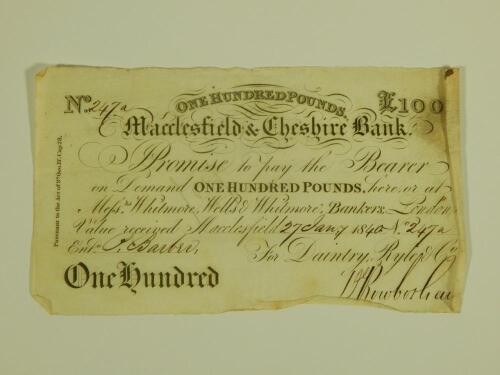 No. 247a ONE HUNDRED POUNDS. £100
Macclesfield & Cheshire Bank.
I Promise to pay the Bearer
on Demand ONE HUNDRED POUNDS, here, or at
Messrs. Whitmore, Wells & Whitmore, Bankers, London
Value received Macclesfield 27 Jany 1840 No. 247a
Entd. For Daintry, Ryle & Co.
One Hundred
Pursuant to the Act of